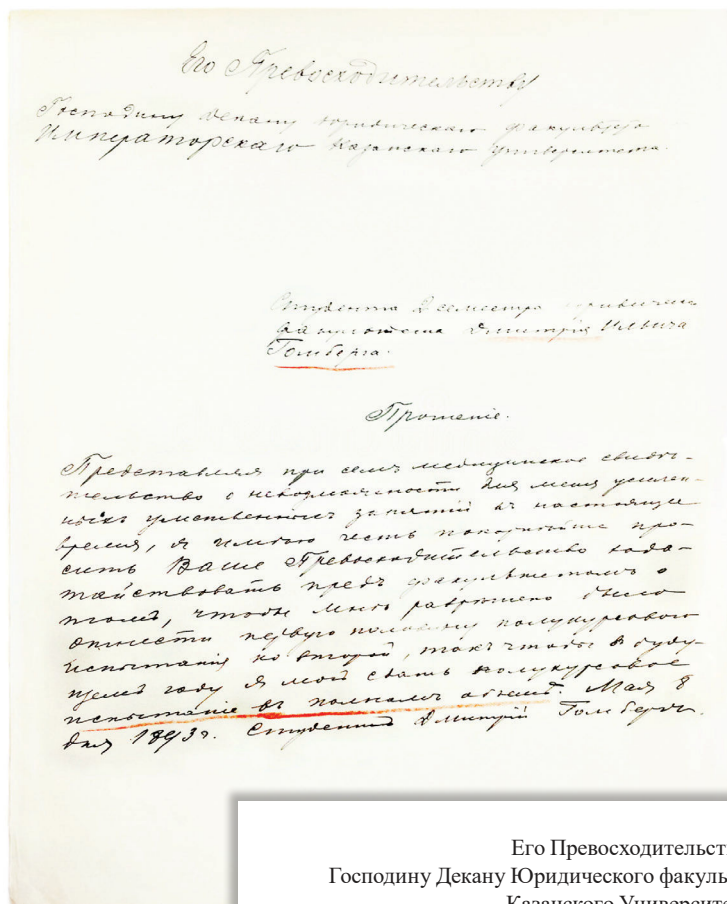 Его Превосходительству
Господину Декану юридическаго факультета
Императорскаго Казанскаго Университета.
Студента 2 семестра юридическаго
факультета Дмитрія Ильича
Гомберга.
Прошеніе.
Представляя при семъ медицинское свидѣ-
тельство о невозможности для меня усилен-
ныхъ умственныхъ занятій въ настоящее
время, я имѣю честь покорнѣйше про-
сить Ваше Превосходительство хода-
тайствовать предъ факультетомъ о
томъ, чтобы мнѣ разрѣшено было
отнести первую половину полукурсового
испытанія ко второй, такъ чтобы въ буду-
щемъ году я могъ сдать полукурсовое
испытаніе въ полномъ объемѣ. Мая 8
дня 1893 г. Студентъ Дмитрій Гомбергъ.
Его Превосходительст
Господину Декану Юридического факуль
Казанского Университе